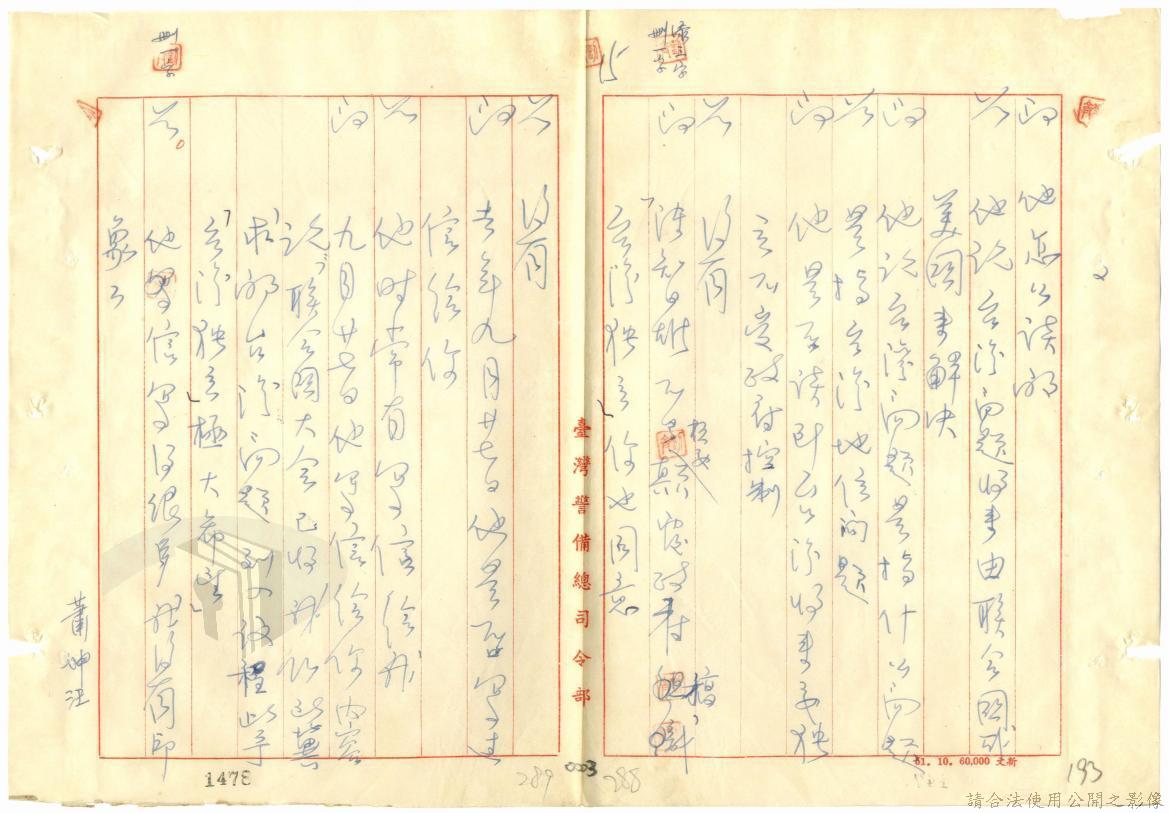 添五字
刪一字
問 他怎么談的
答 他說台灣問題將來由聯合國或
美國來解決
問 他說台灣問題是指什么問題
答 是指台灣地位問題
問 他是否談到台灣將來要独
立不受政府控制
答 沒有
問 陳智雄
顛覆政府
搞
台灣独立你也同意
答 沒有
15
臺灣警備總司令部
51. 10. 60,000 文新
193
288
003
刪一字
問 去年九月廿七日他是否寫過
信給你
答 他時常有寫信給我
問 九月廿七日他寫信給你內容
說「聯合國大會已將
求的台灣問題列入議程此乎
「台灣独立」極大希望」
答 他寫信寫得很多我沒有印
象了
蕭坤旺
289
1478
請合法使用公開之影像